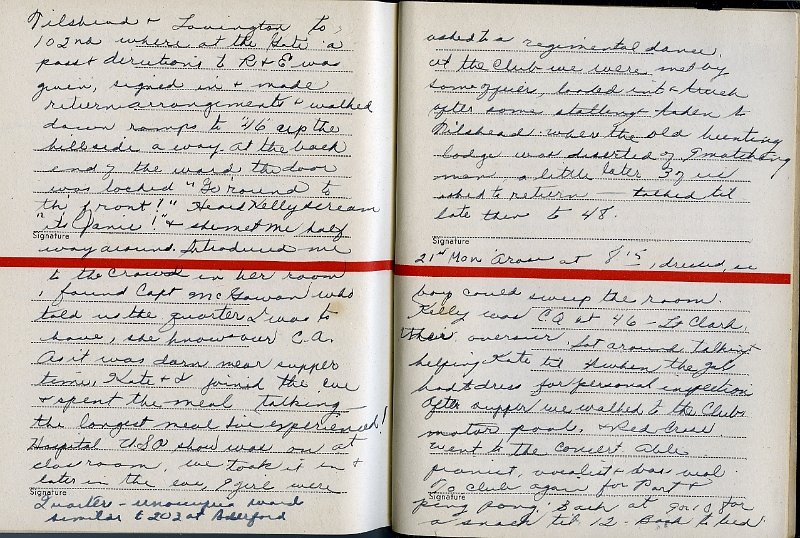 Tilshead & Lavington to
102nd where at the Gate a
pass & directions to R & E was
given, signed in & made
return arrangements & walked
down ramps to "46" up the
hillside a way. At the back
end of the ward the door
was locked "Go round to
the front!" Heard Kelly scream
"its Janie!" & she met me half
Signature
way around. Introduced me
to the crowd in her room
, found Capt McGowan who
told us the quarter I was to
have, she knows our C.A.
As it was darn near supper
time, Kate & I joined the eve
& spent the meal talking
the longest meal I've experienced!
Hospital USO show was on at
classroom, we took it in &
later in the eve, girls were
Signature
Quarters - unoccupied ward
similar to 202 at
asked to a regimental dance.
at the Club we were met by
some ofjcers, loaded into a truck
after some stalling taken to
Tilshead where the old hunting
lodge was deserted of
men a little later 3 of us
asked to return - talked til
late then to 48.
Signature
21st Mon Arose at 8:15, dressed, so
boy could sweep the room.
Kelly was CQ at 46 - Lt Clark
their overseer. Sat around talking &
helping Kate til 4 when the gal
had to dress for personal inspection
After supper we walked to the Clubs
motor pool, & Red Cross
went to the concert. Able
pianist, vocalist & bass viol.
To club again for Port &
Signature
ping pong. Back at 9 or 10 for
a snack til 12 - Back to bed.